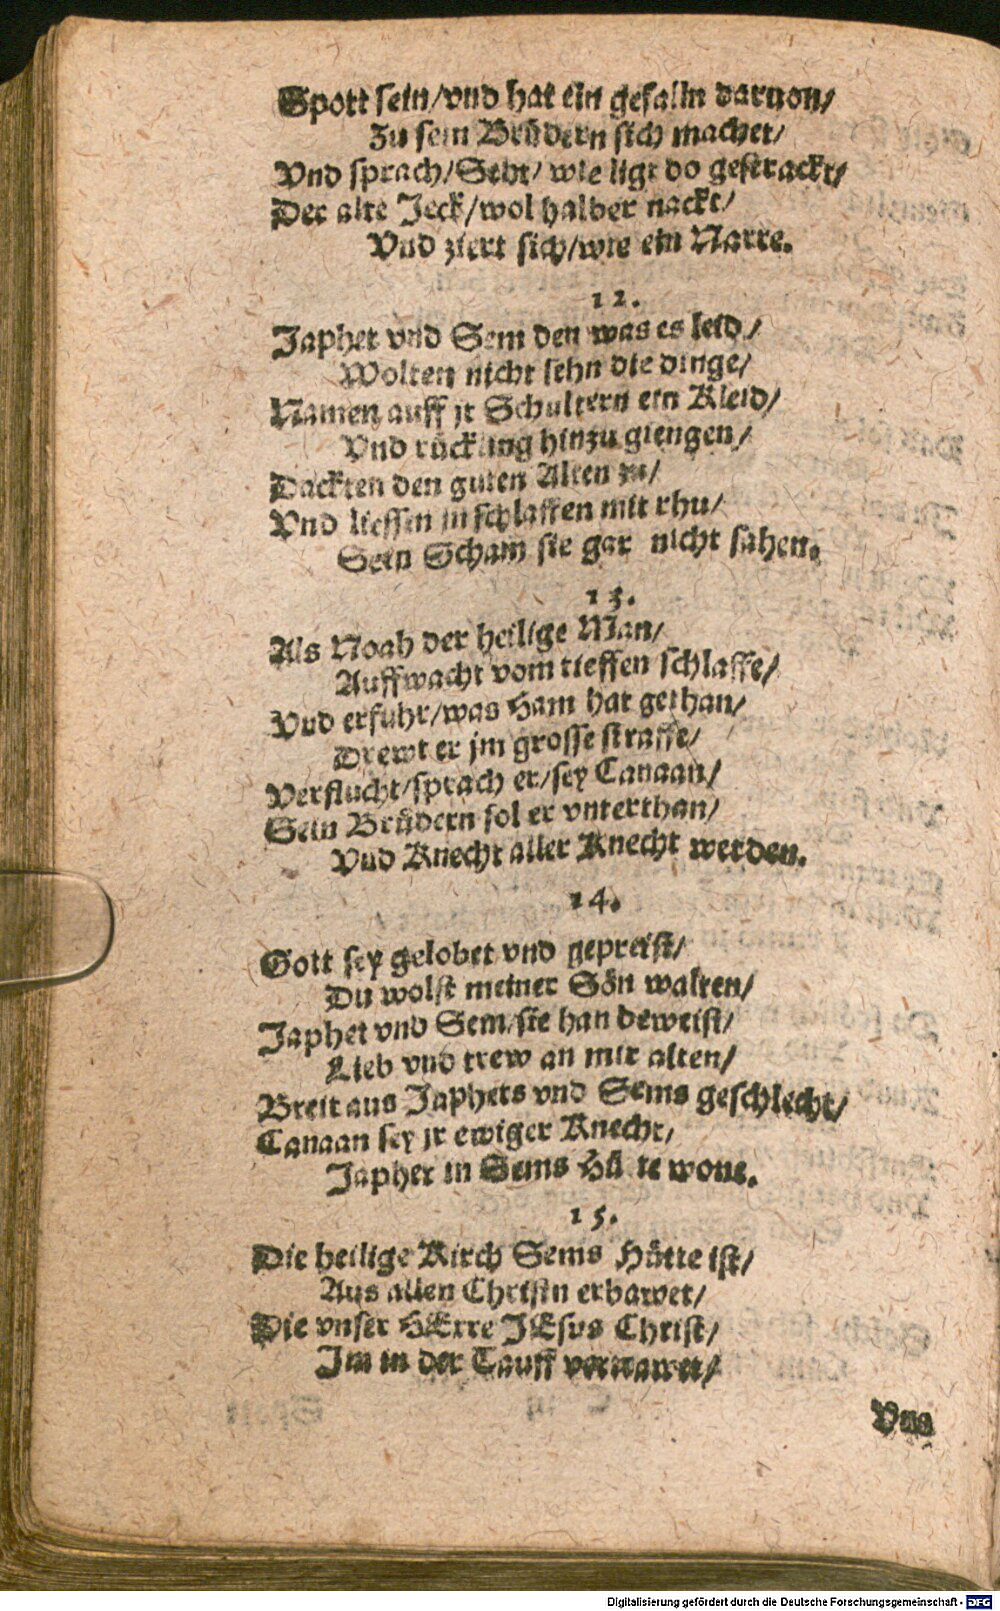 Spott sein/vnd hat ein gefalln daruon/
Zu sein Brüdern sich machet/
Vnd sprach/Seht/ wie ligt do gestrackt/
Der alte Jeck/wol halber nackt/
Vnd ziert sich/wie ein Narre.
12.
Japhet vnd Sem den was es leid/
Wolten nicht sehn die dinge/
Namen auff jr Schultern ein Kleid/
Vnd rückling hinzu giengen/
Dackten den guten Alten zu/
Vnd liessen jn schlaffen mit rhu/
Sein Scham sie gar nicht sahen.
13.
Als Noah der heilige Man/
Auffwacht vom tieffen schlaffe/
Vnd erfuhr/was Ham hat gethan/
Drewt er jm grosse straffe/
Verflucht/sprach er/sey Canaan/
Sein Brüdern sol er vnterthan/
Vnd Knecht aller Knecht werden.
14.
Gott sey gelobet vnd gepreist/
Du wolst meiner Sön walten/
Japhet vnd Sem/sie han beweist/
Lieb vnd trew an mir alten/
Breit aus Japhets vnd Sems geschlecht/
Canaan sey jr ewiger Knecht/
Japhet in Sems Hü te wone.
15.
Die heilige Kirch Sems Hütte ist/
Aus allen Christn erbawet/
Die vnser HErre JEsus Christ/
Im in der Tauff vertrawet/
Vns
Digitalisierung gefördert durch die Deutsche Forschungsgemeinschaft - DFG